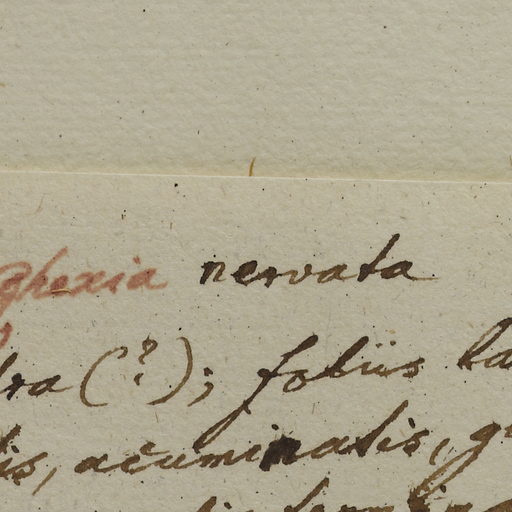 ghexia nervata
ra (?); foliis la
is, acuminatis, g